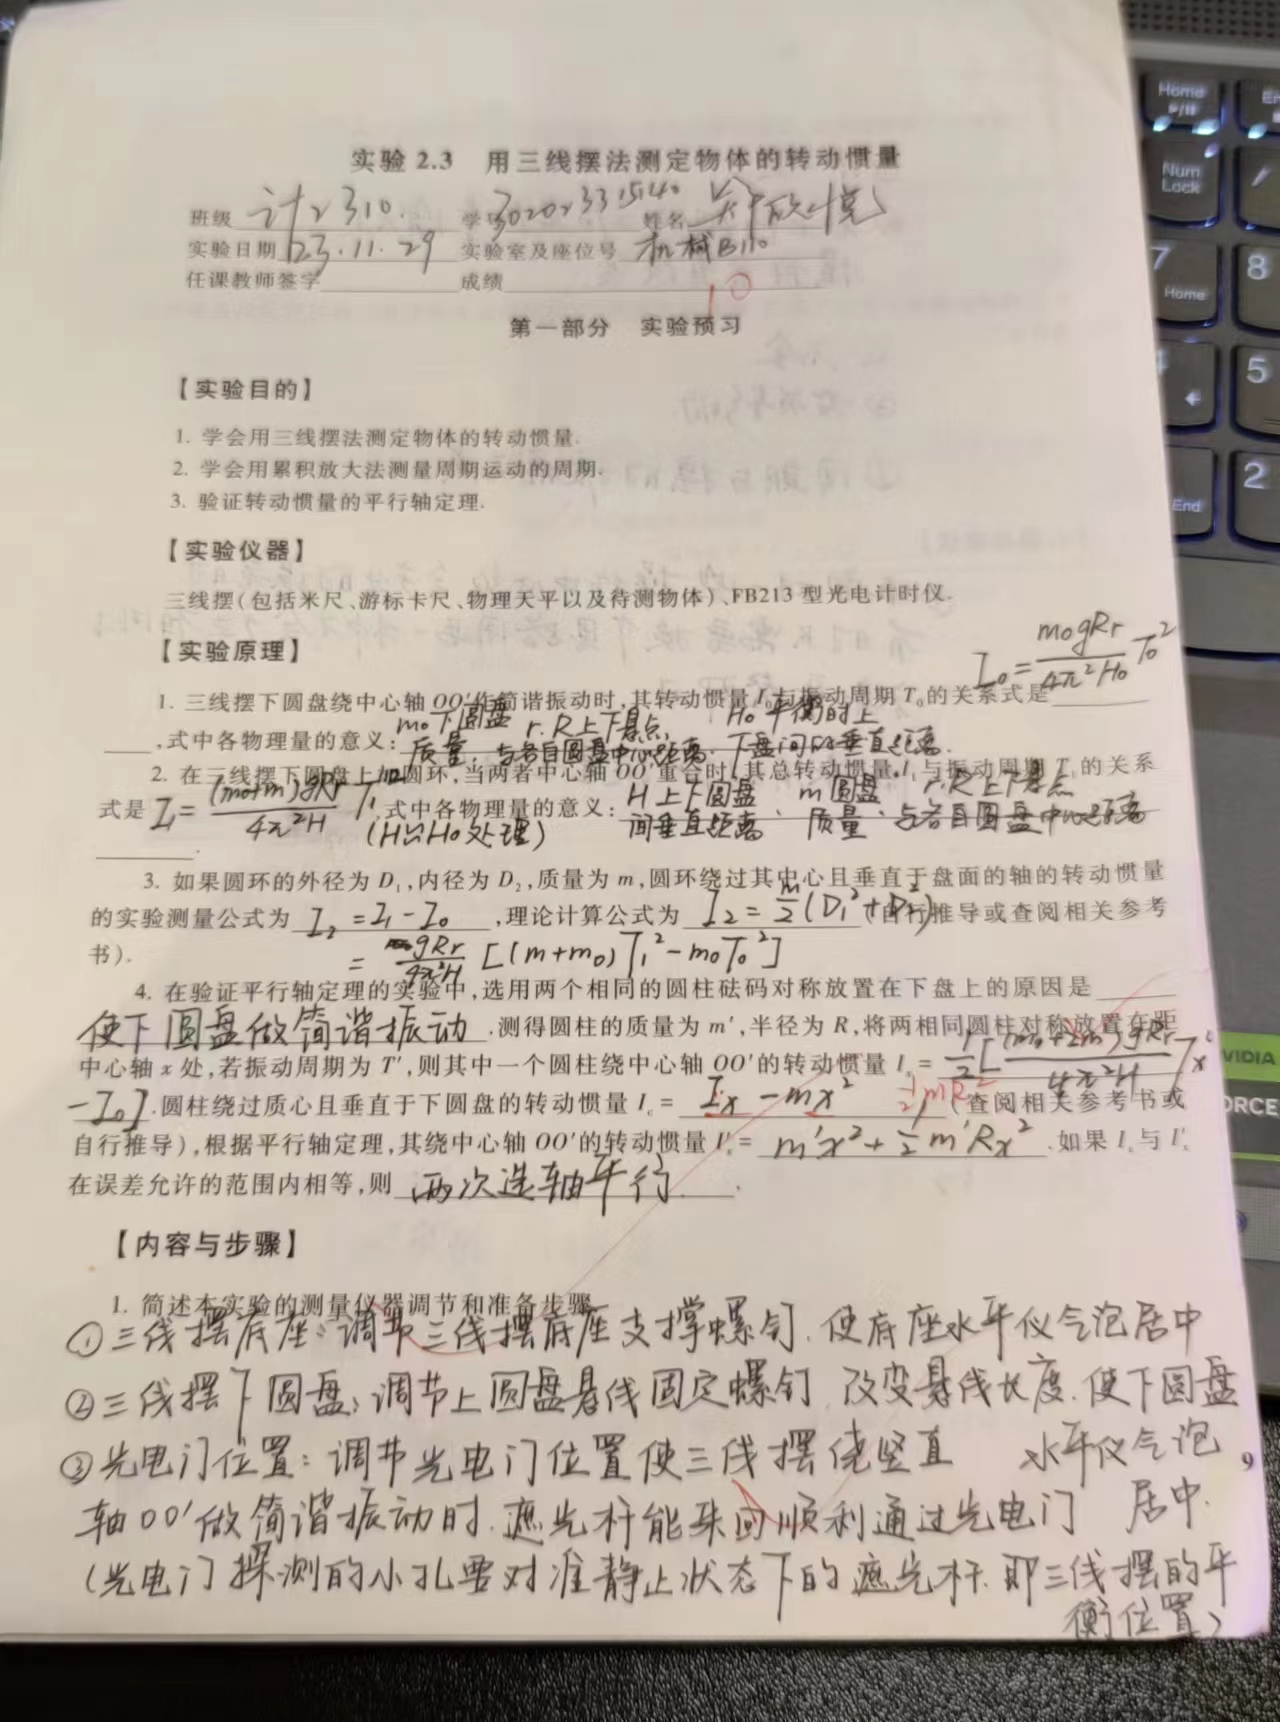 实验 2.3 用三线摆法测定物体的转动惯量
班级 计2310. 学号 3020233 姓名
实验日期 23.11.29 实验室及座位号 机械B110
任课教师签字 成绩 10
第一部分 实验预习
【实验目的】
1. 学会用三线摆法测定物体的转动惯量.
2. 学会用累积放大法测量周期运动的周期.
3. 验证转动惯量的平行轴定理.
【实验仪器】
三线摆(包括米尺、游标卡尺、物理天平以及待测物体)、FB213 型光电计时仪.
【实验原理】
1. 三线摆下圆盘绕中心轴 OO′作简谐振动时,其转动惯量 I₀与振动周期 T₀的关系式是 I₀=m₀gRr/4π²H₀ T₀²
,式中各物理量的意义: m₀下圆盘质量, r.R上下悬点与各自圆盘中心距离. H₀平衡时上下盘间的垂直距离.
2. 在三线摆下圆盘上加圆环,当两者中心轴 OO′重合时,其总转动惯量 I₁与振动周期 T₁的关系
式是 I₁=(m₀+m)gRr/4π²H T₁² ,式中各物理量的意义: H上下圆盘间垂直距离. m圆盘质量. r.R上下悬点与各自圆盘中心距离
(H以H₀处理)
3. 如果圆环的外径为 D₁,内径为 D₂,质量为 m,圆环绕过其中心且垂直于盘面的轴的转动惯量
的实验测量公式为 I₂=I₁-I₀ ,理论计算公式为 I₂=m/2(D₁²+D₂²) (自行推导或查阅相关参考
书).
= gRr/4π²H [(m+m₀)T₁²-m₀T₀²]
4. 在验证平行轴定理的实验中,选用两个相同的圆柱砝码对称放置在下盘上的原因是
使下圆盘做简谐振动 .测得圆柱的质量为 m′,半径为 R,将两相同圆柱对称放置在距
中心轴 x 处,若振动周期为 T′,则其中一个圆柱绕中心轴 OO′的转动惯量 Iₓ= 1/2[(m₀+2m′)gRr/4π²H Tx²
-I₀] .圆柱绕过质心且垂直于下圆盘的转动惯量 I꜀= Ix-mx² 1/2mR² (查阅相关参考书或
自行推导),根据平行轴定理,其绕中心轴 OO′的转动惯量 I′ₓ= m′x²+1/2m′Rx² .如果 Iₓ与 I′ₓ
在误差允许的范围内相等,则 两次选轴平行 .
【内容与步骤】
1. 简述本实验的测量仪器调节和准备步骤.
①三线摆底座:调节三线摆底座支撑螺钉.使底座水平仪气泡居中
②三线摆下圆盘:调节上圆盘悬线固定螺钉,改变悬线长度.使下圆盘
水平仪气泡
居中.
③光电门位置:调节光电门位置使三线摆绕竖直
轴OO′做简谐振动时.遮光杆能来回顺利通过光电门
(光电门探测的小孔要对准静止状态下的遮光杆.即三线摆的平
衡位置)
9
Home
Num
Lock
7
Home
8
5
2
End
VIDIA
ORCE